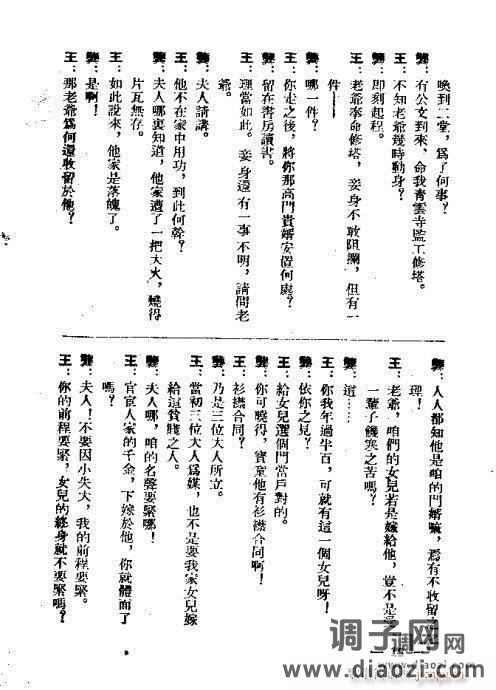 喚到二堂，爲了何事？
龔：有公文到來，命我靑雲寺監工修塔。
王：不知老爺幾時動身？
龔：卽刻起程。
王：老爺奉命修塔，妾身不敢阻攔，但有一
件——
龔：哪一件？
王：你走之後，將你那高門貴婿安置何處？
龔：留在書房讀書。
王：理當如此。妾身還有一事不明，請問老
爺。
龔：夫人請講。
王：他不在家中用功，到此何幹？
龔：夫人哪裏知道，他家遭了一把大火，燒得
片瓦無存。
王：如此說來，他家是落魄了。
龔：是啊！
王：那老爺爲何還收留於他？
龔：人人都知他是咱的門婿嘛，焉有不收留之
理！
王：老爺，咱們的女兒若是嫁給他，豈不是受
一輩子饑寒之苦嗎？
龔：這……
王：你我年過半百，可就有這一個女兒呀！
龔：依你之見？
王：給女兒選個門當戶對的。
龔：你可曉得，實棄他有衫襟合同啊！
王：衫襟合同？
龔：乃是三位大人所立。
王：當初三位大人爲媒，也不是要我家女兒嫁
給這貧賤之人。
龔：夫人哪，咱的名聲要緊哪！
王：官宦人家的千金，下嫁於他，你就體面了
嗎？
龔：夫人！不要因小失大，我的前程要緊。
王：你的前程要緊，女兒的終身就不要緊嗎？
調子网网
www.diaozi.com